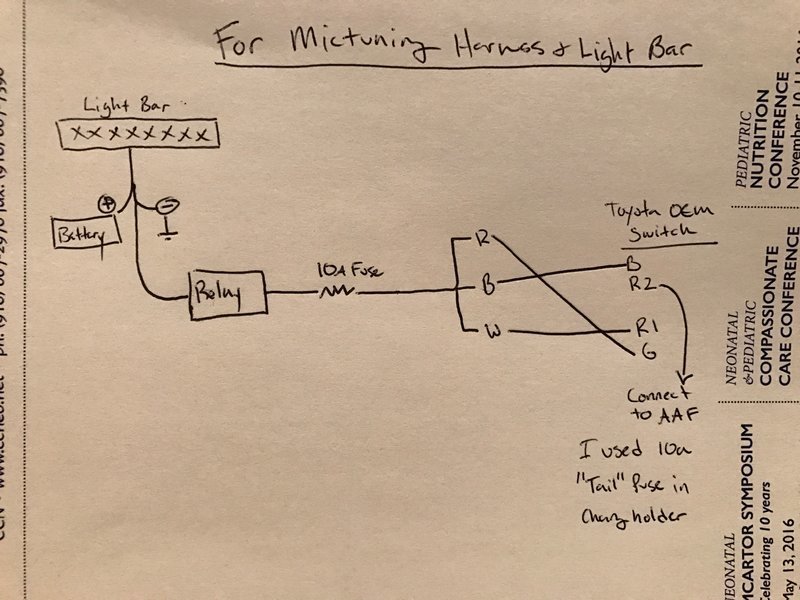 For Mictuning Harness & Light Bar
Light Bar
XXXXXXXX
+
-
Battery
Relay
10A Fuse
R
B
W
Toyota OEM
Switch
B
R2
R1
G
Connect
to AAF
I used 10a
"Tail" fuse in
holder
PEDIATRIC
NUTRITION
CONFERENCE
November 10-11
NEONATAL
&PEDIATRIC
COMPASSIONATE
CARE CONFERENCE
NEONATAL
MCARTOR SYMPOSIUM
Celebrating 10 years
May 13, 2016